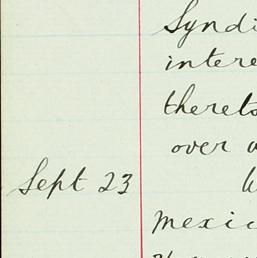 Syndi
intere
thereto
over
Sept 23
Mexic